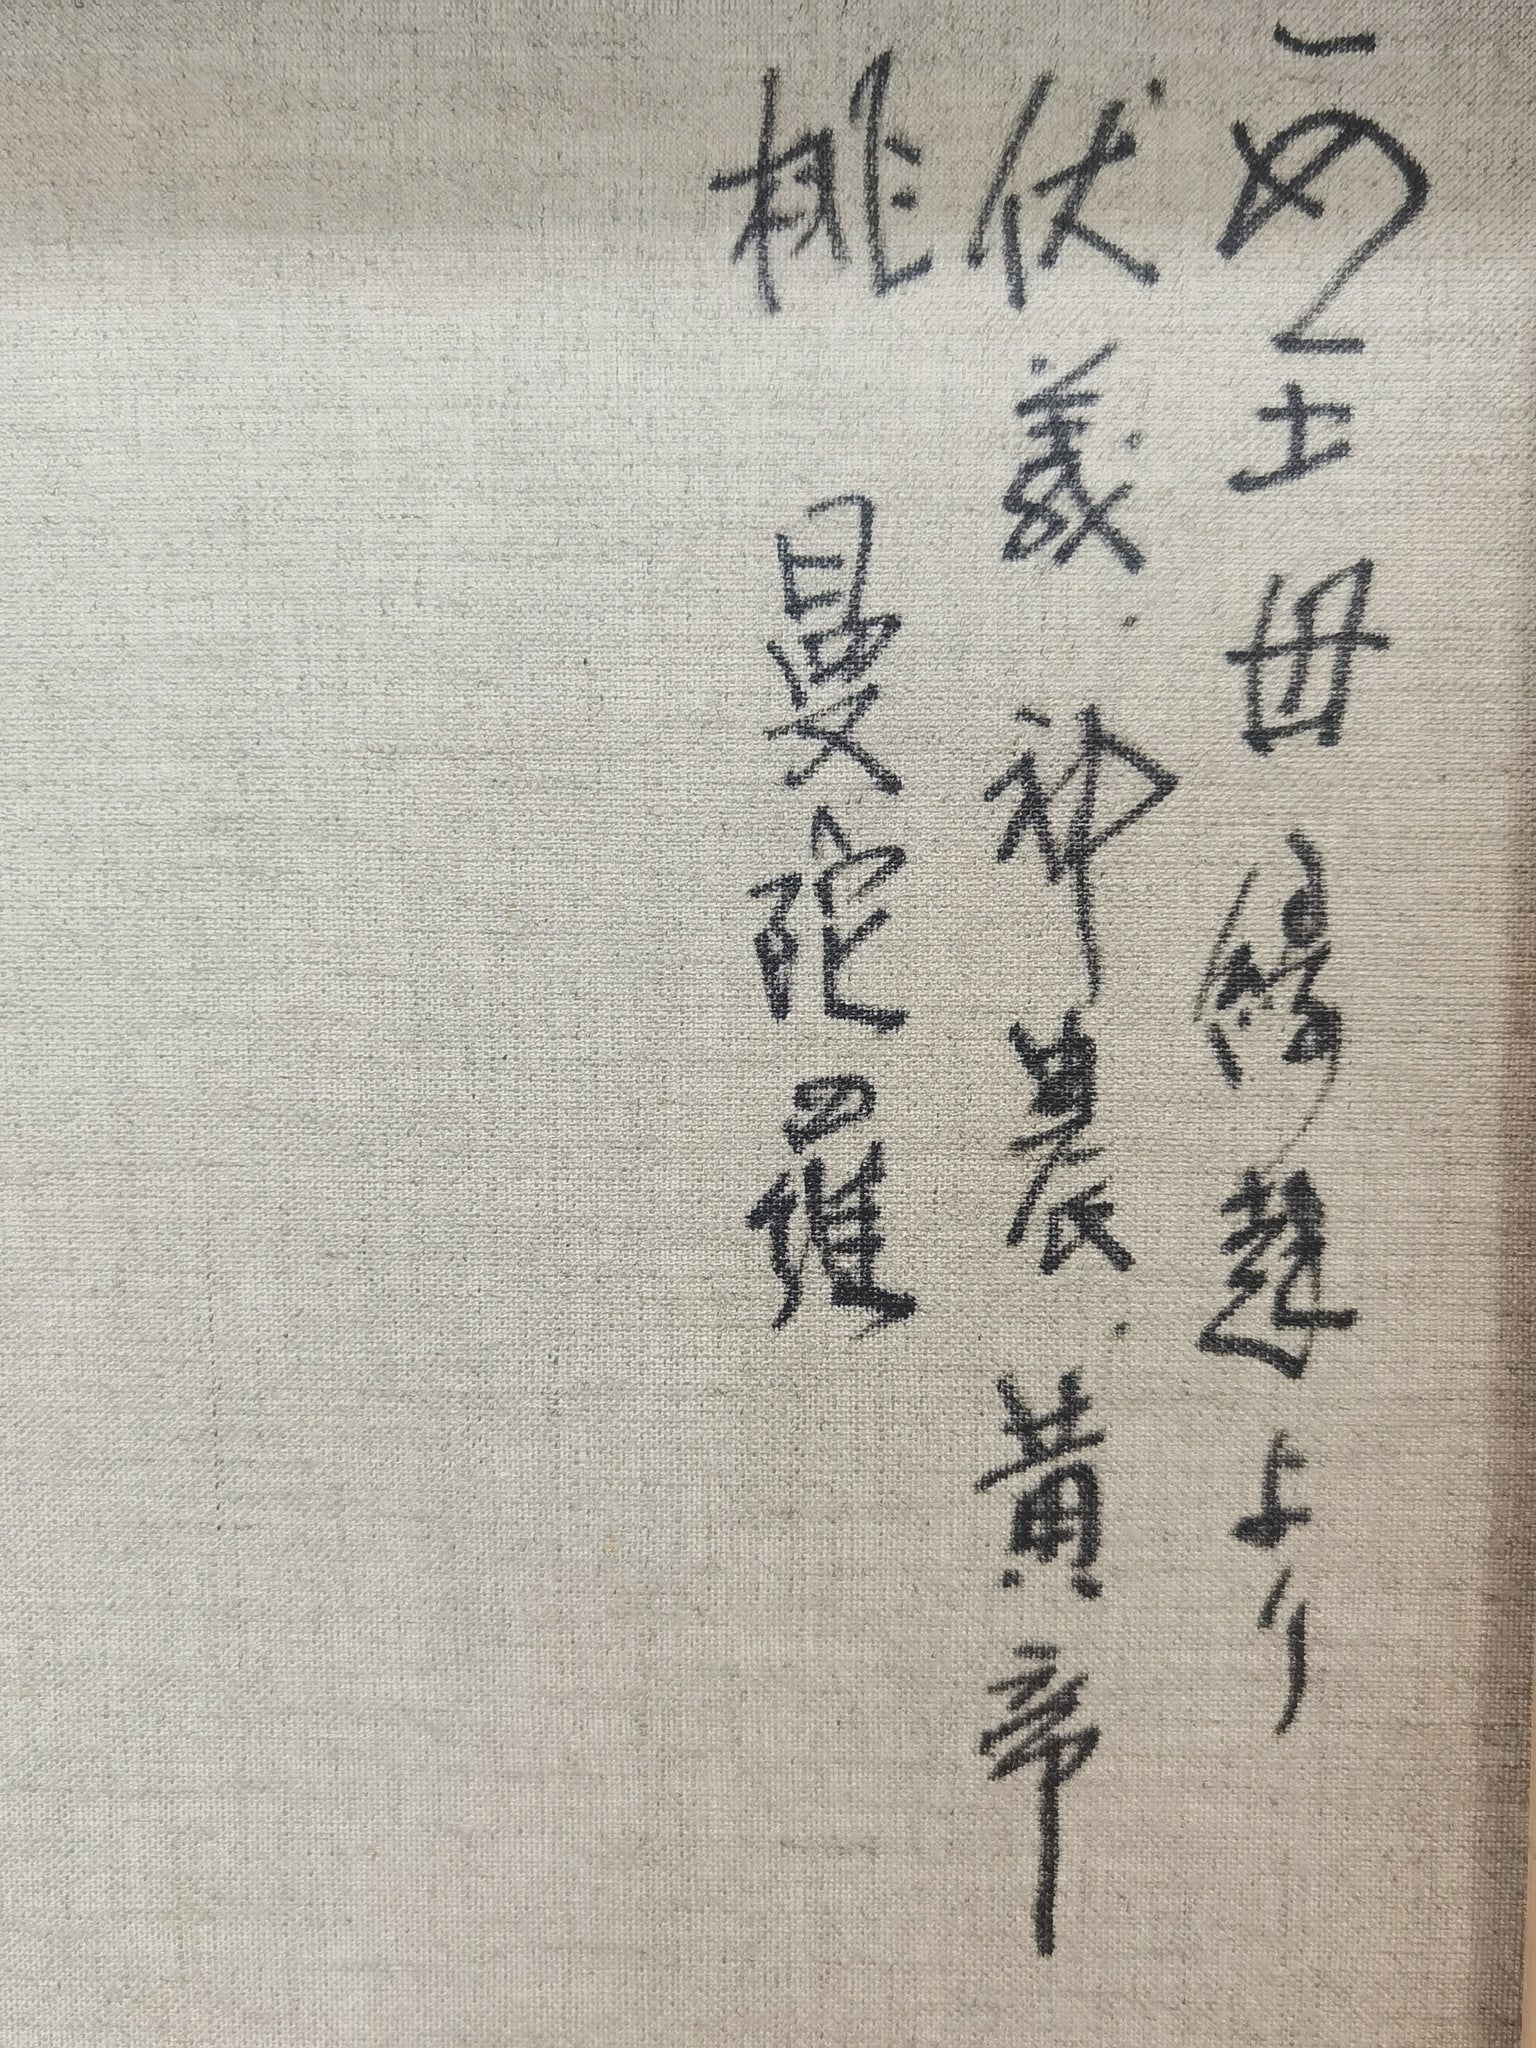 西王母より
伏羲.神農.黄帝
桃 曼陀羅